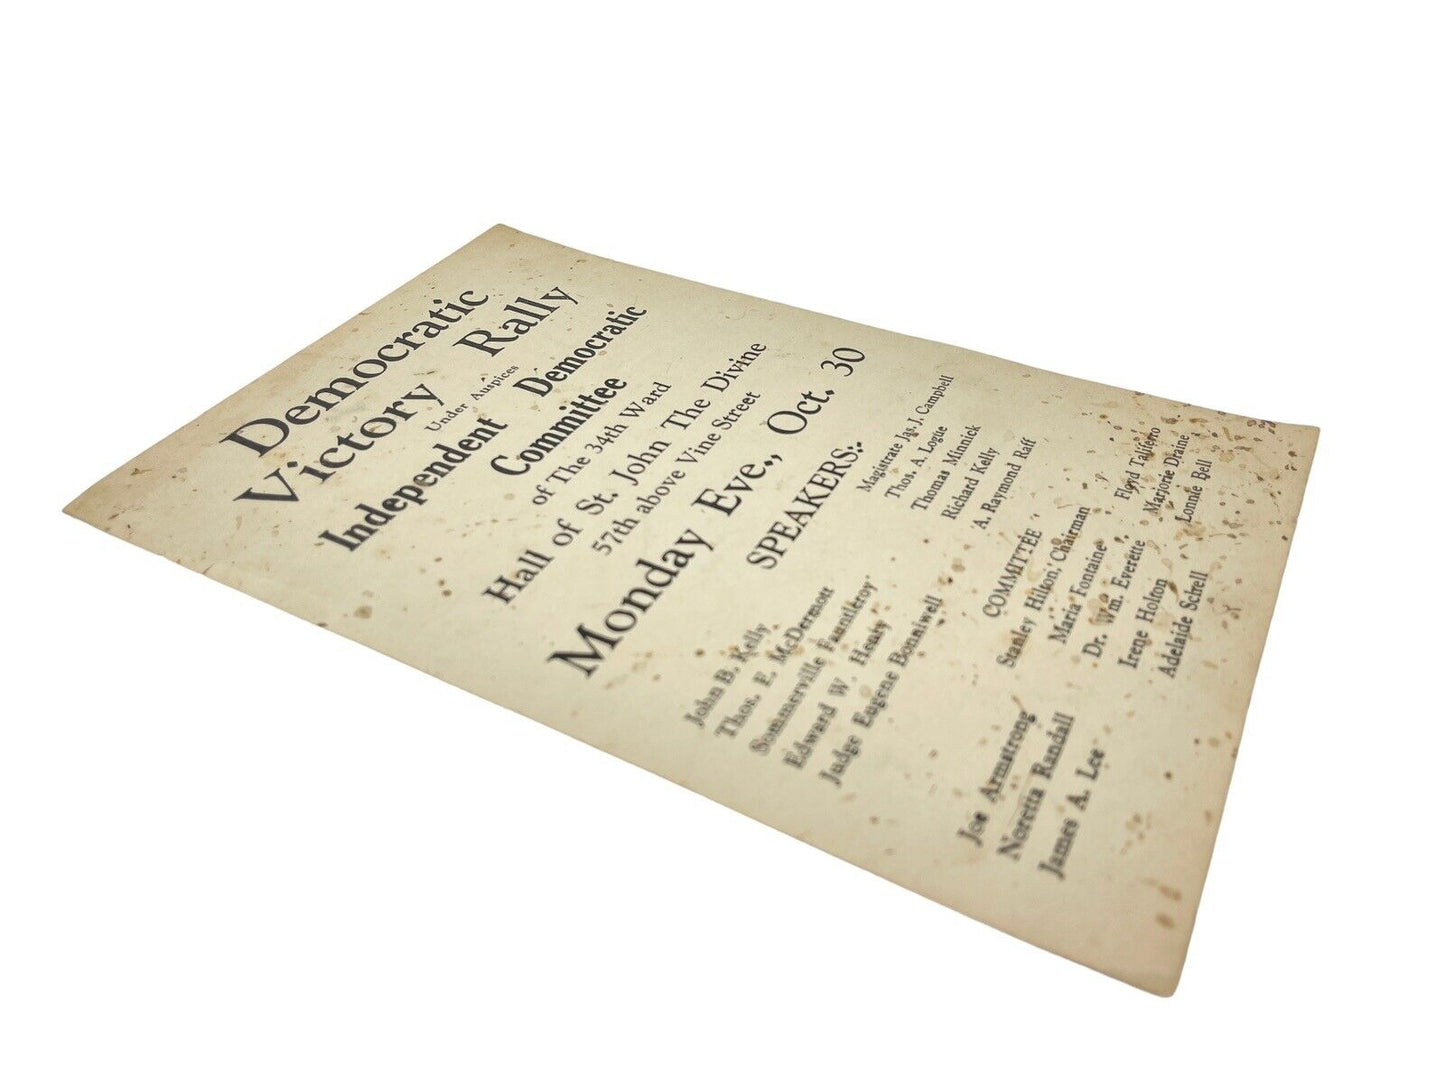 Democratic
Victory Rally
Under Auspices
Independent Democratic
Committee
of The 34th Ward
Hall of St. John The Divine
57th above Vine Street
Monday Eve., Oct. 30
SPEAKERS:
John B. Kelly
Thos. E. McDermott
Sommerville Fauntleroy
Edward W Henty
Judge Eugene Bonniwell
Magistrate Jas. J. Campbell
Thos. A. Logue
Thomas Minnick
Richard Kelly
A. Raymond Raff
COMMITTEE
Stanley Hilton, Chairman
Joe Armstrong
Noretta Randall
James A. Lee
Maria Fontaine
Dr. Wm. Everette
Irene Holton
Adelaide Schell
Floyd Taliferro
Marjorie Draine
Lonnie Bell